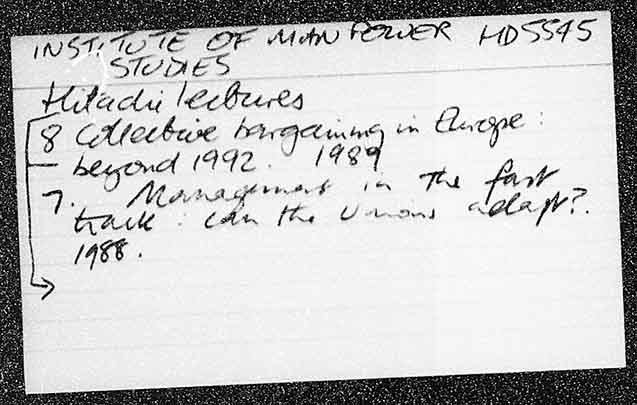 INSTITUTE OF MAN POWER HD5545
STUDIES
Hitachi lectures
8 Collective bargaining in Europe:
beyond 1992. 1989
7. Management in the fast
track: can the Unions adapt?.
1988.